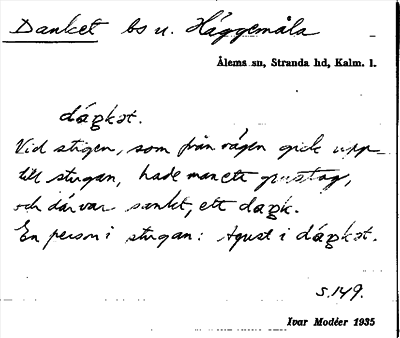 Danket bs u. Häggemåla
Ålems sn, Stranda hd, Kalm. l.
dáŋkət.
Vid stigen, som från vägen gick upp
till stugan, hade man ett grustag,
och där var sankt, ett dank.
En person i stugan: Agust i dáŋkət.
s. 149.
Ivar Modéer 1935